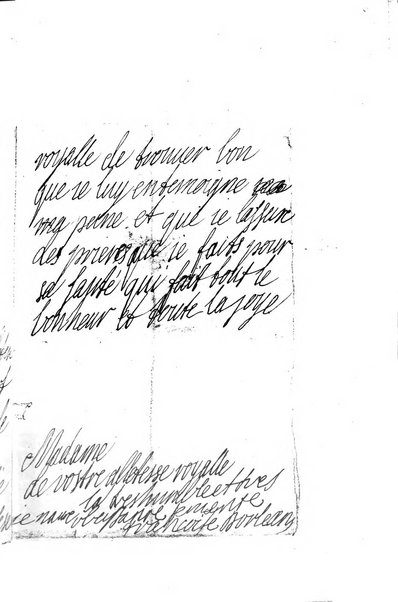 royalle de trouuer bon
que ie luy entemoigne
ma peine et que ie lassure
des prieres que ie faits pour
sa santé qui fait tout le
bonheur et toute la joye
Madame
de vostre altesse royalle
la tres humble et tres
obeissante
francoise dorleans